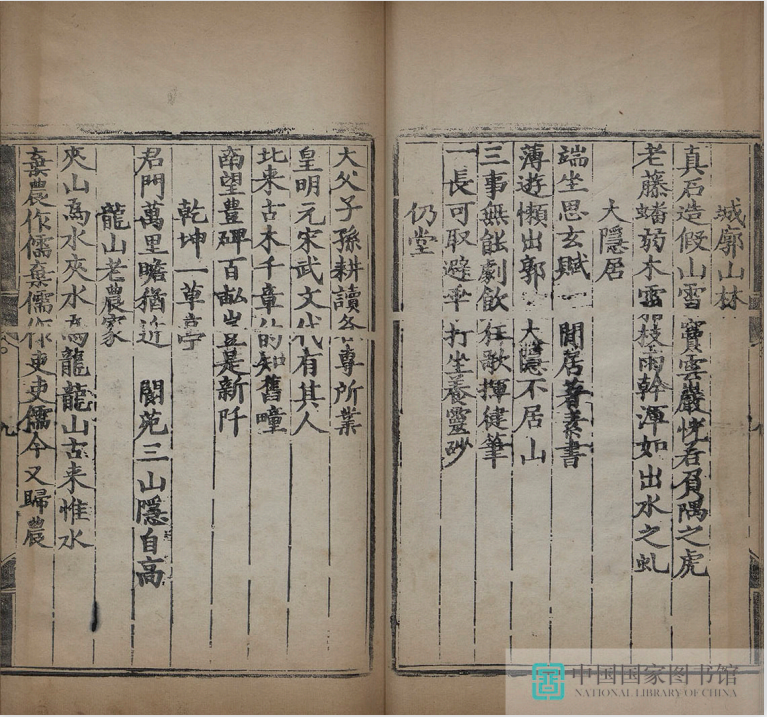 城廓山林
真石造假山雪竇雲巖恍若負隅之虎
老藤蟠弱木雪枝雨幹渾如出水之虬
大隱居
端坐思玄賦 閒居著素書
薄遊懶出郭 大隱不居山
三事無能劇飲狂歌揮健筆
一長可取避 打坐養靈砂
仍堂
大父子孫耕讀各專所業
皇明元宋武文代有其人
北来古木千章的知舊疃
南望豐碑百 豈是新阡
乾坤一草亭
君門萬里瞻猶近 閬苑三山隱自高
龍山老農家
夾山為水夾水為龍龍山古来惟水
棄農作儒棄儒作吏吏儒今又歸農
九
九
中国国家图书馆
NATIONAL LIBRARY OF CHINA